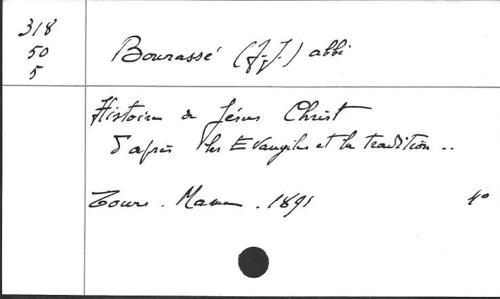 318
50
5
Bourassé (J-J.) abbé
Histoire de Jésus Christ
d'après les Evangiles et la tradition ..
Tours. Mame. 1891 4°